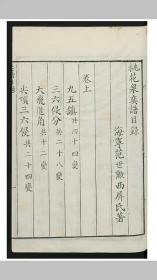 桃花泉奕譜目錄
海寧范世勲西屏氏著
卷上
九五鎮共四十四變
三六侵分共二十八變
大飛進角共十二變
尖頂三六侵共二十四變